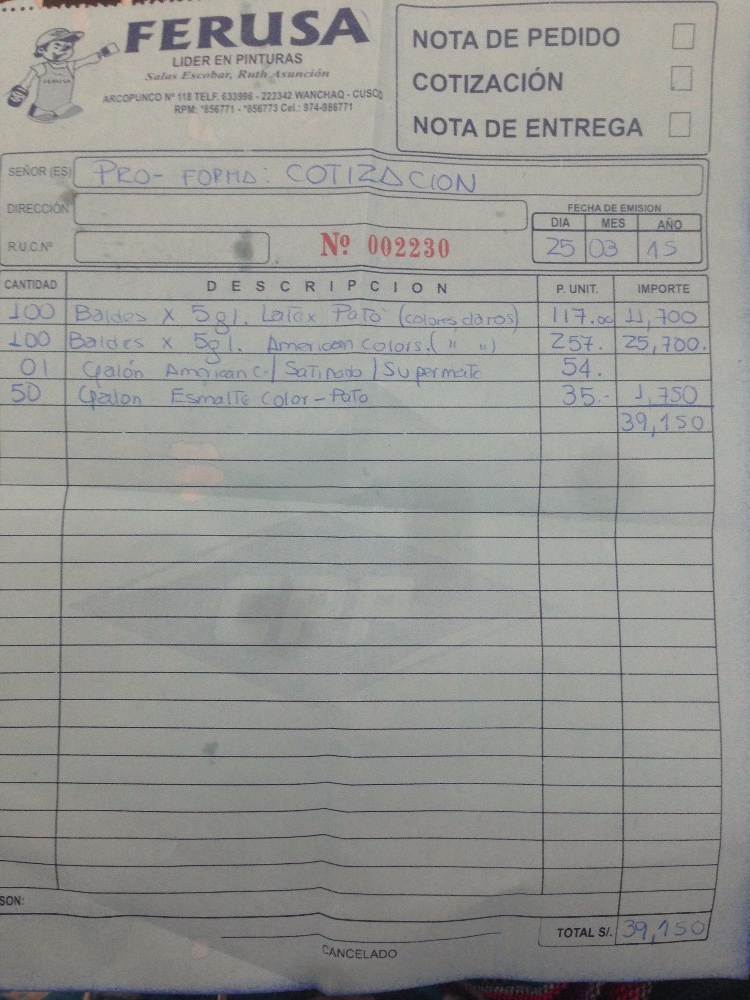 FERUSA
LIDER EN PINTURAS
Salas Escobar, Ruth Asunción
ARCOPUNCO Nº 118 TELF. 633996 - 222342 WANCHAQ - CUSCO
RPM: *856771 - *856773 Cel.: 974-986771
NOTA DE PEDIDO
COTIZACIÓN
NOTA DE ENTREGA
SEÑOR (ES) PRO- FORMA: COTIZACION
DIRECCIÓN
FECHA DE EMISION
DIA MES AÑO
R.U.C.Nº Nº 002230 25 03 15
CANTIDAD DESCRIPCION P. UNIT. IMPORTE
100 Baldes x 5gl. Latex Pato (colores claros) 117.00 11,700
100 Baldes x 5gl. American Colors. ( " ") 257. 25,700.
01 Galón American C/ Satinado / Supermate 54.
50 Galon Esmalte Color - Pato 35.- 1,750
39,150
CPP
SON:
TOTAL S/. 39,150
CANCELADO